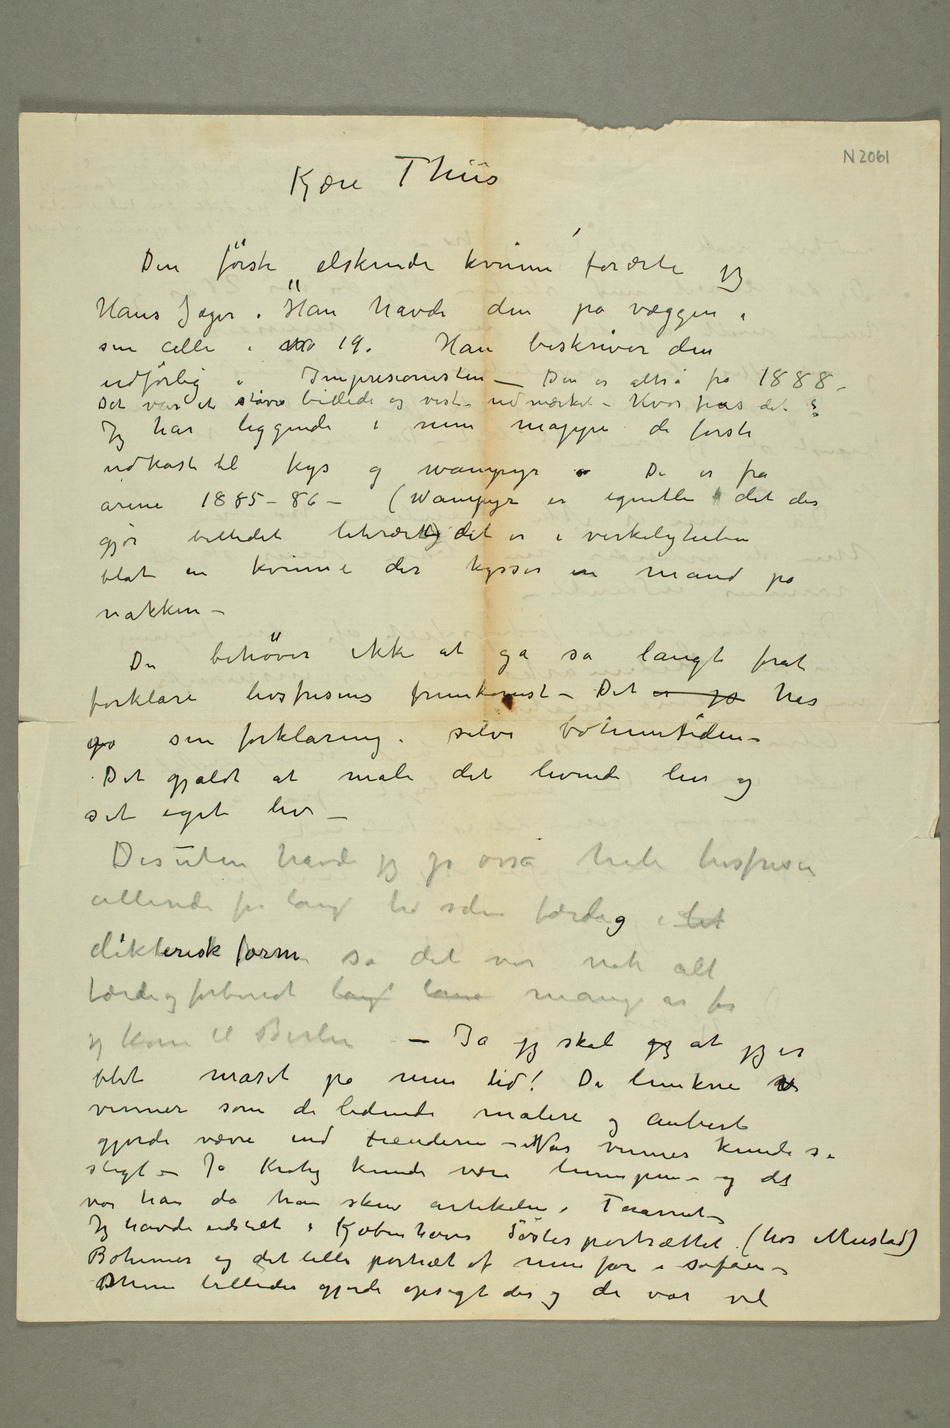 N 2061
Kjære Thiis
Den förste elskende kvinne forærte jeg
Hans Jæger. Han havde den på væggen i
sin celle i no 19. Han beskriver den
udförlig i Impresionisten – Den er altså fra 1888 –
Det var et större billede og vist udmærket – Hvor fins det?
Jeg har liggende i min mappe de förste
udkast til kys og wampyr De er fra
årene 1885-86 – (Wampyr er egentlig det der
gjør billedet literært) det er i virkeligheden
blot en kvinne der kysser en mand på
nakken –
Du behöver ikke at gå så langt forat
forklare livsfrisens fremkomst – Det er jo har
jo sin forklaring i selve bohemtiden –
Det gjaldt at male det levende liv og
set eget liv –
Desuten havde jeg jo osså hele livsfrisen
allerede for lang tid siden færdig i let
dikterisk form så det var nok alt
færdig forberedt langt mange år før
jeg kom til Berlin – Ja jeg skal jeg at jeg er
blet maset på min tid! De lumskne
venner som de ledende malere og Aubert
gjorde være end fienderne – Når venner kunde si
sligt – Ja Krohg kunde være lumpen – og det
var han da han skrev artikelen i Taarnet –
Jeg havde udstilet i Kjøbenhavn Søsterportrættet (hos Mustad)
Bohemer og det lille portræt af min far i sofaen –
Mine billeder gjorde opsigt der og de var vel